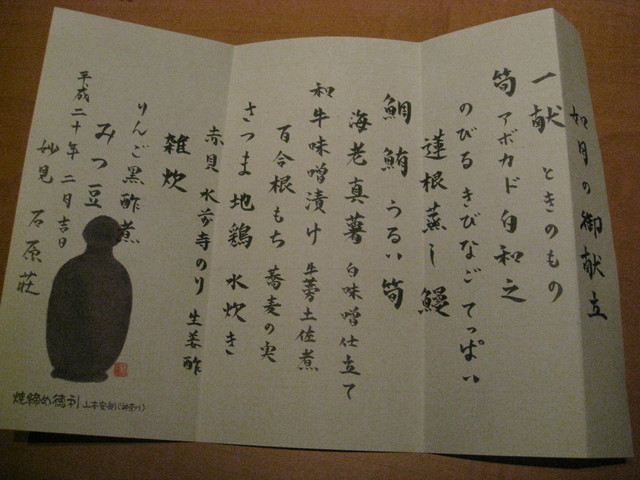 如月の御献立
一献 ときのもの
筍 アボカド白和え
のびる きびなご てっぱい
蓮根蒸し 鰻
鯛 鮪 うるい 筍
海老真薯 白味噌仕立て
和牛味噌漬け 牛蒡土佐煮
百合根もち 蕎麦の実
さつま地鶏 水炊き
赤貝 水前寺のり 生姜酢
雑炊
りんご黒酢煮
みつ豆
平成二十年 二月吉日
妙見 石原荘
焼締め徳利